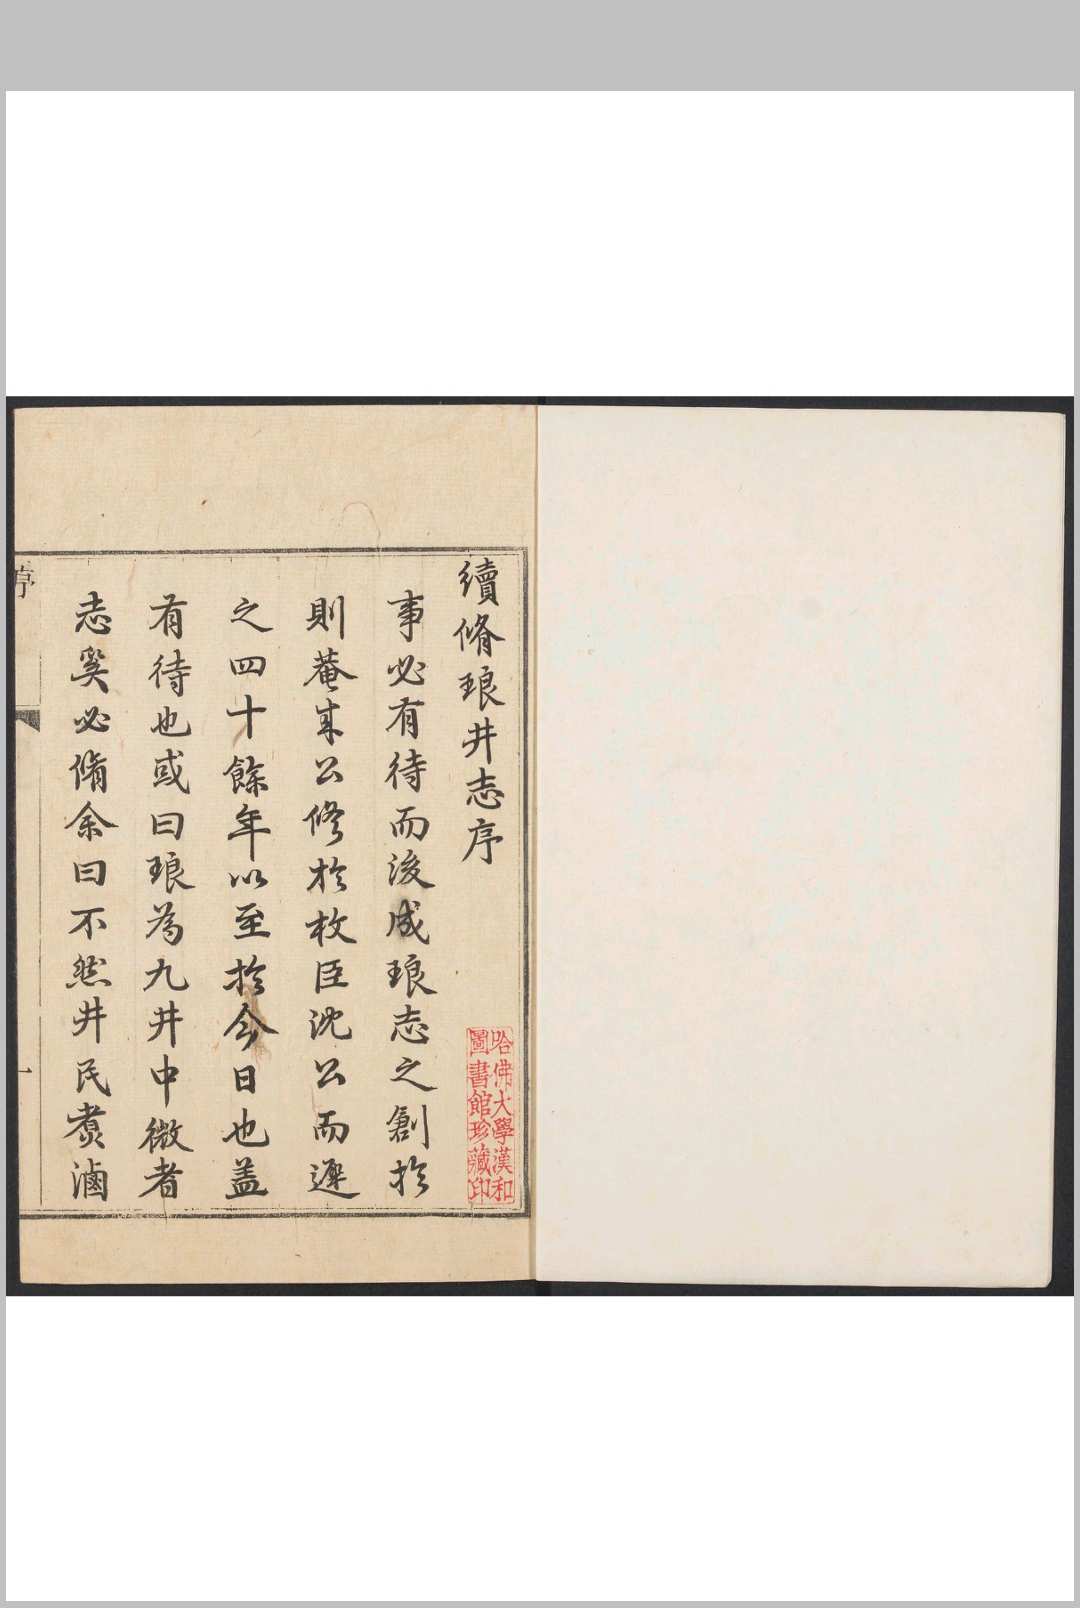 續脩琅井志序
事必有待而後成琅志之創於
則菴來公修於枚臣沈公而遲
之四十餘年以至於今日也蓋
有待也或曰琅為九井中微者
志奚必脩余曰不然井民煑滷
序
一
哈佛大學漢和
圖書館珍藏印